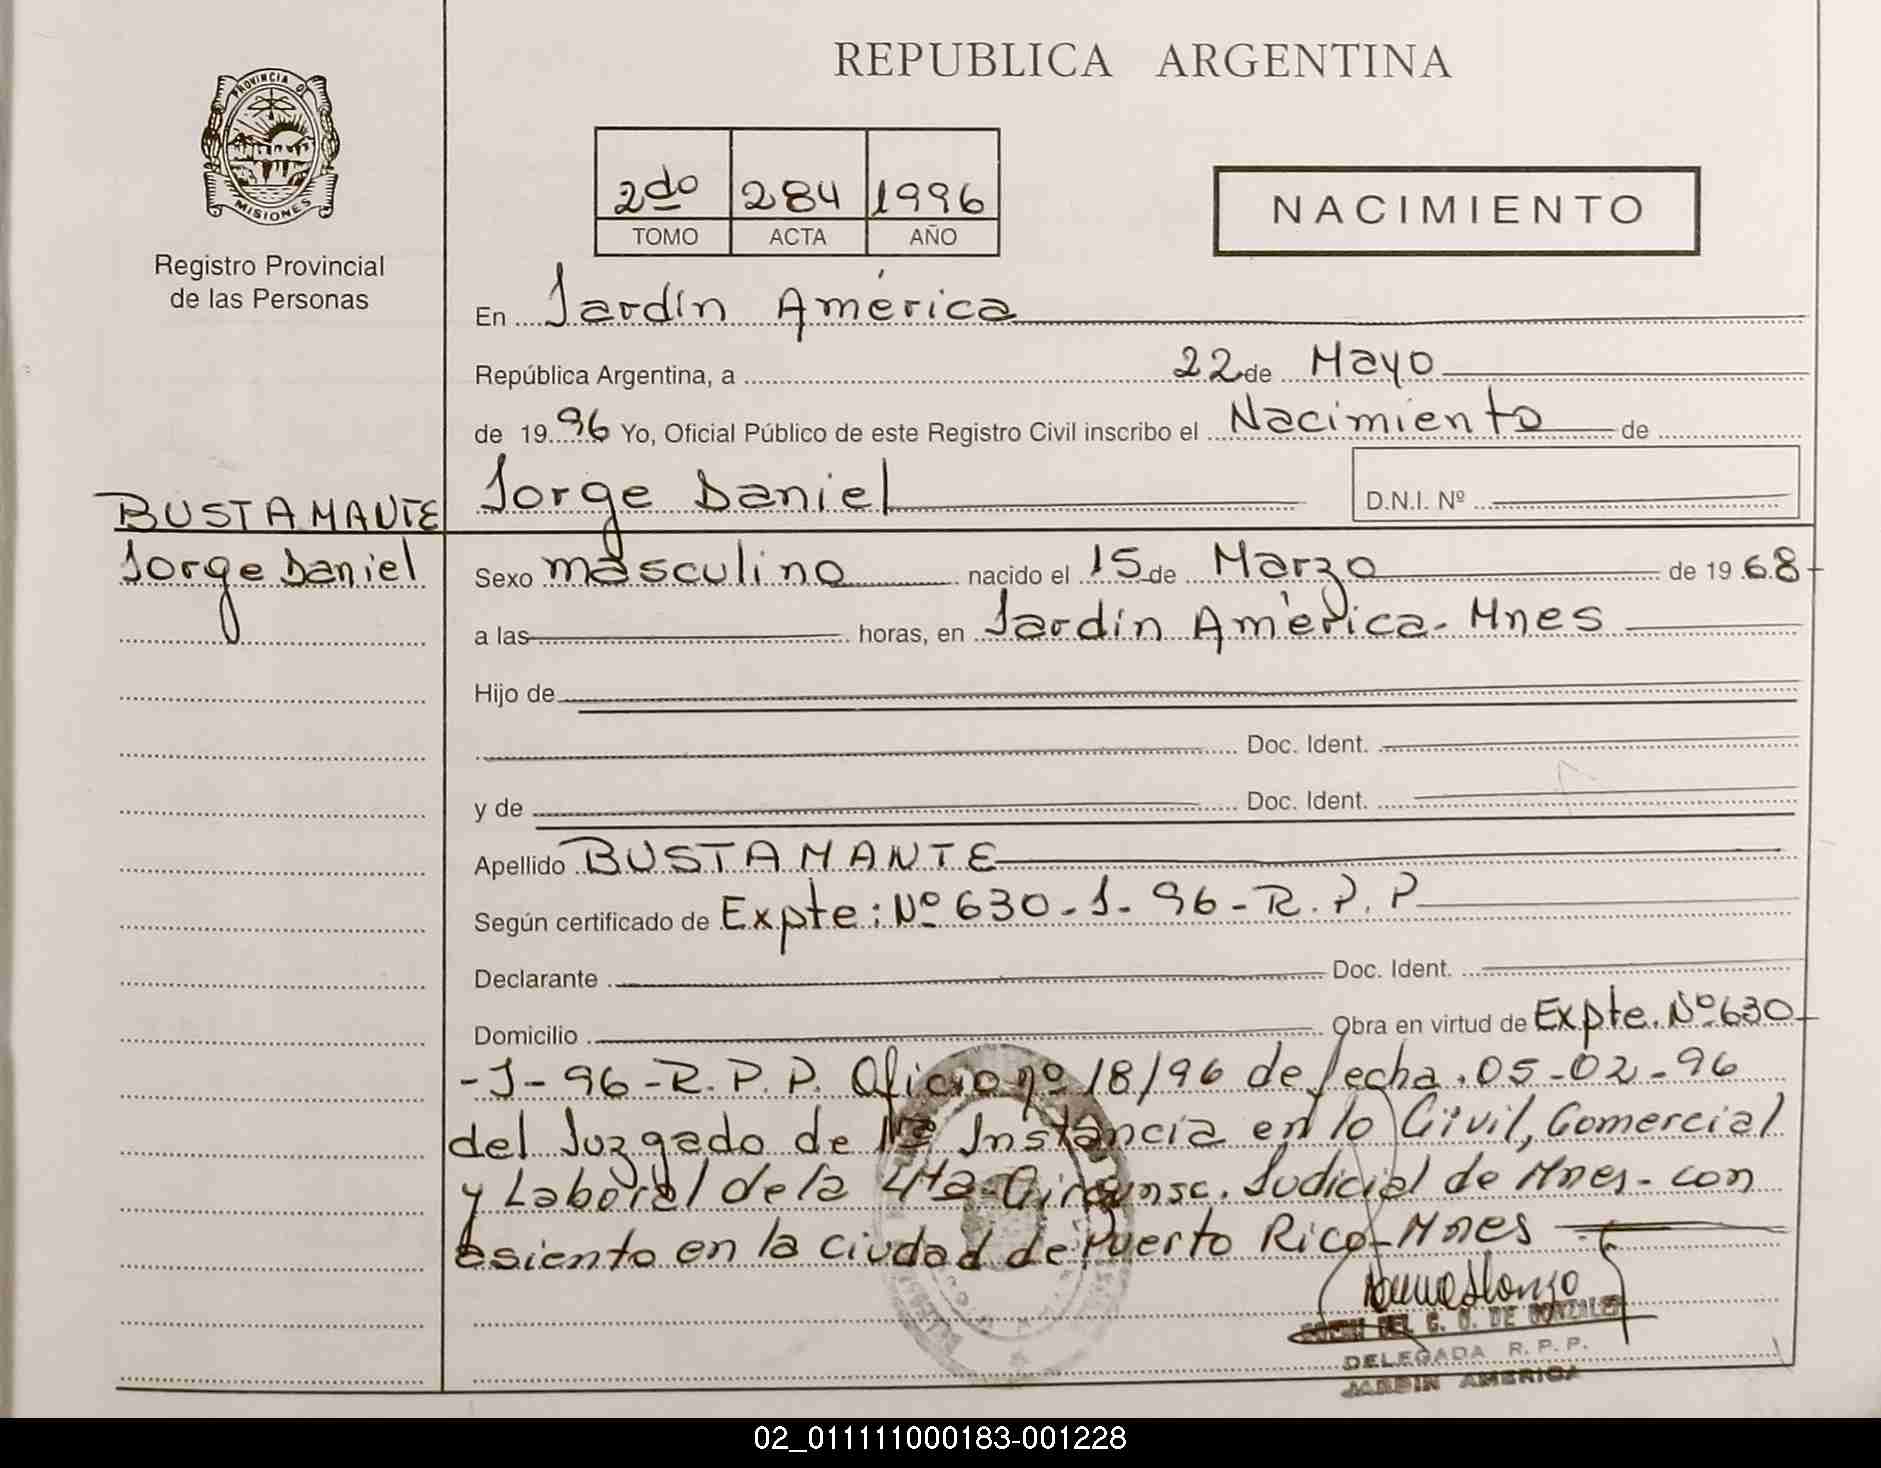 REPUBLICA ARGENTINA
PROVINCIA DE
MISIONES
Registro Provincial
de las Personas
2do 284 1996
TOMO ACTA AÑO
NACIMIENTO
En Jardín América
República Argentina, a 22 de Mayo
de 1996 Yo, Oficial Público de este Registro Civil inscribo el Nacimiento de
Jorge Daniel D.N.I. Nº
BUSTAMANTE
Jorge Daniel
Sexo masculino nacido el 15 de Marzo de 1968
a las horas, en Jardín América - Mnes
Hijo de
Doc. Ident.
y de Doc. Ident.
Apellido BUSTAMANTE
Según certificado de Expte: Nº 630-J-96-R.P.P
Declarante Doc. Ident.
Domicilio Obra en virtud de Expte. Nº 630
-J-96-R.P.P. Oficio nº 18/96 de fecha 05-02-96
del Juzgado de 1ra Instancia en lo Civil, Comercial
y Laboral de la 4ta Circunsc. Judicial de Mnes - con
asiento en la ciudad de Puerto Rico - Mnes
DEL C. G. DE GONZALEZ
DELEGADA R.P.P.
JARDIN AMERICA
02_011111000183-001228